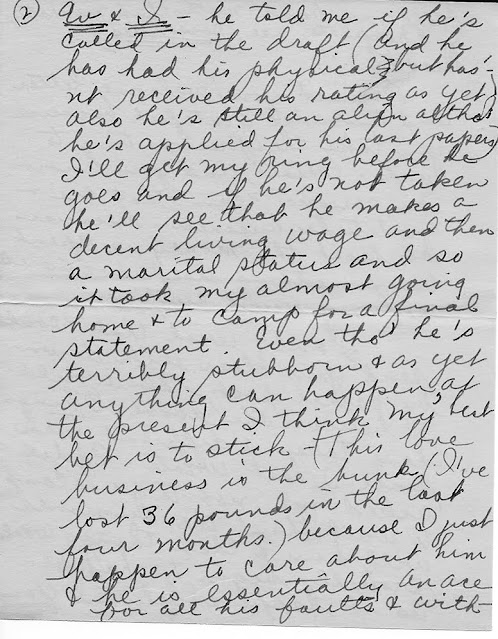 (2) Av & I - he told me if he's
called in the draft (and he
has had his physical & but has-
nt received his rating as yet)
also he's still an alien altho'
he's applied for his last papers)
I'll get my ring before he
goes and if he's not taken
he'll see that he makes a
decent living wage and then
a marital status and so
it took my almost going
home & to camp for a final
statement. Even tho' he's
terribly stubborn & as yet
anything can happen, at
the present I think my best
bet is to stick - (This love
business is the bunk (I've
lost 36 pounds in the last
four months.) because I just
happen to care about him
& he is essentially an ace
for all his faults & with-